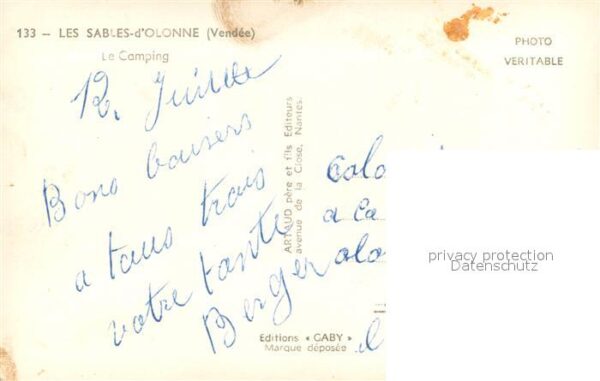 133 – LES SABLES-d'OLONNE (Vendée)
Le Camping
PHOTO
VERITABLE
12. Juillet
Bons baisers
a tous trois
votre tante
Berger
ARTAUD père et fils Editeurs
avenue de la Close, Nantes
Colo
a la
olo
privacy protection
Datenschutz
Editions "GABY"
Marque déposée